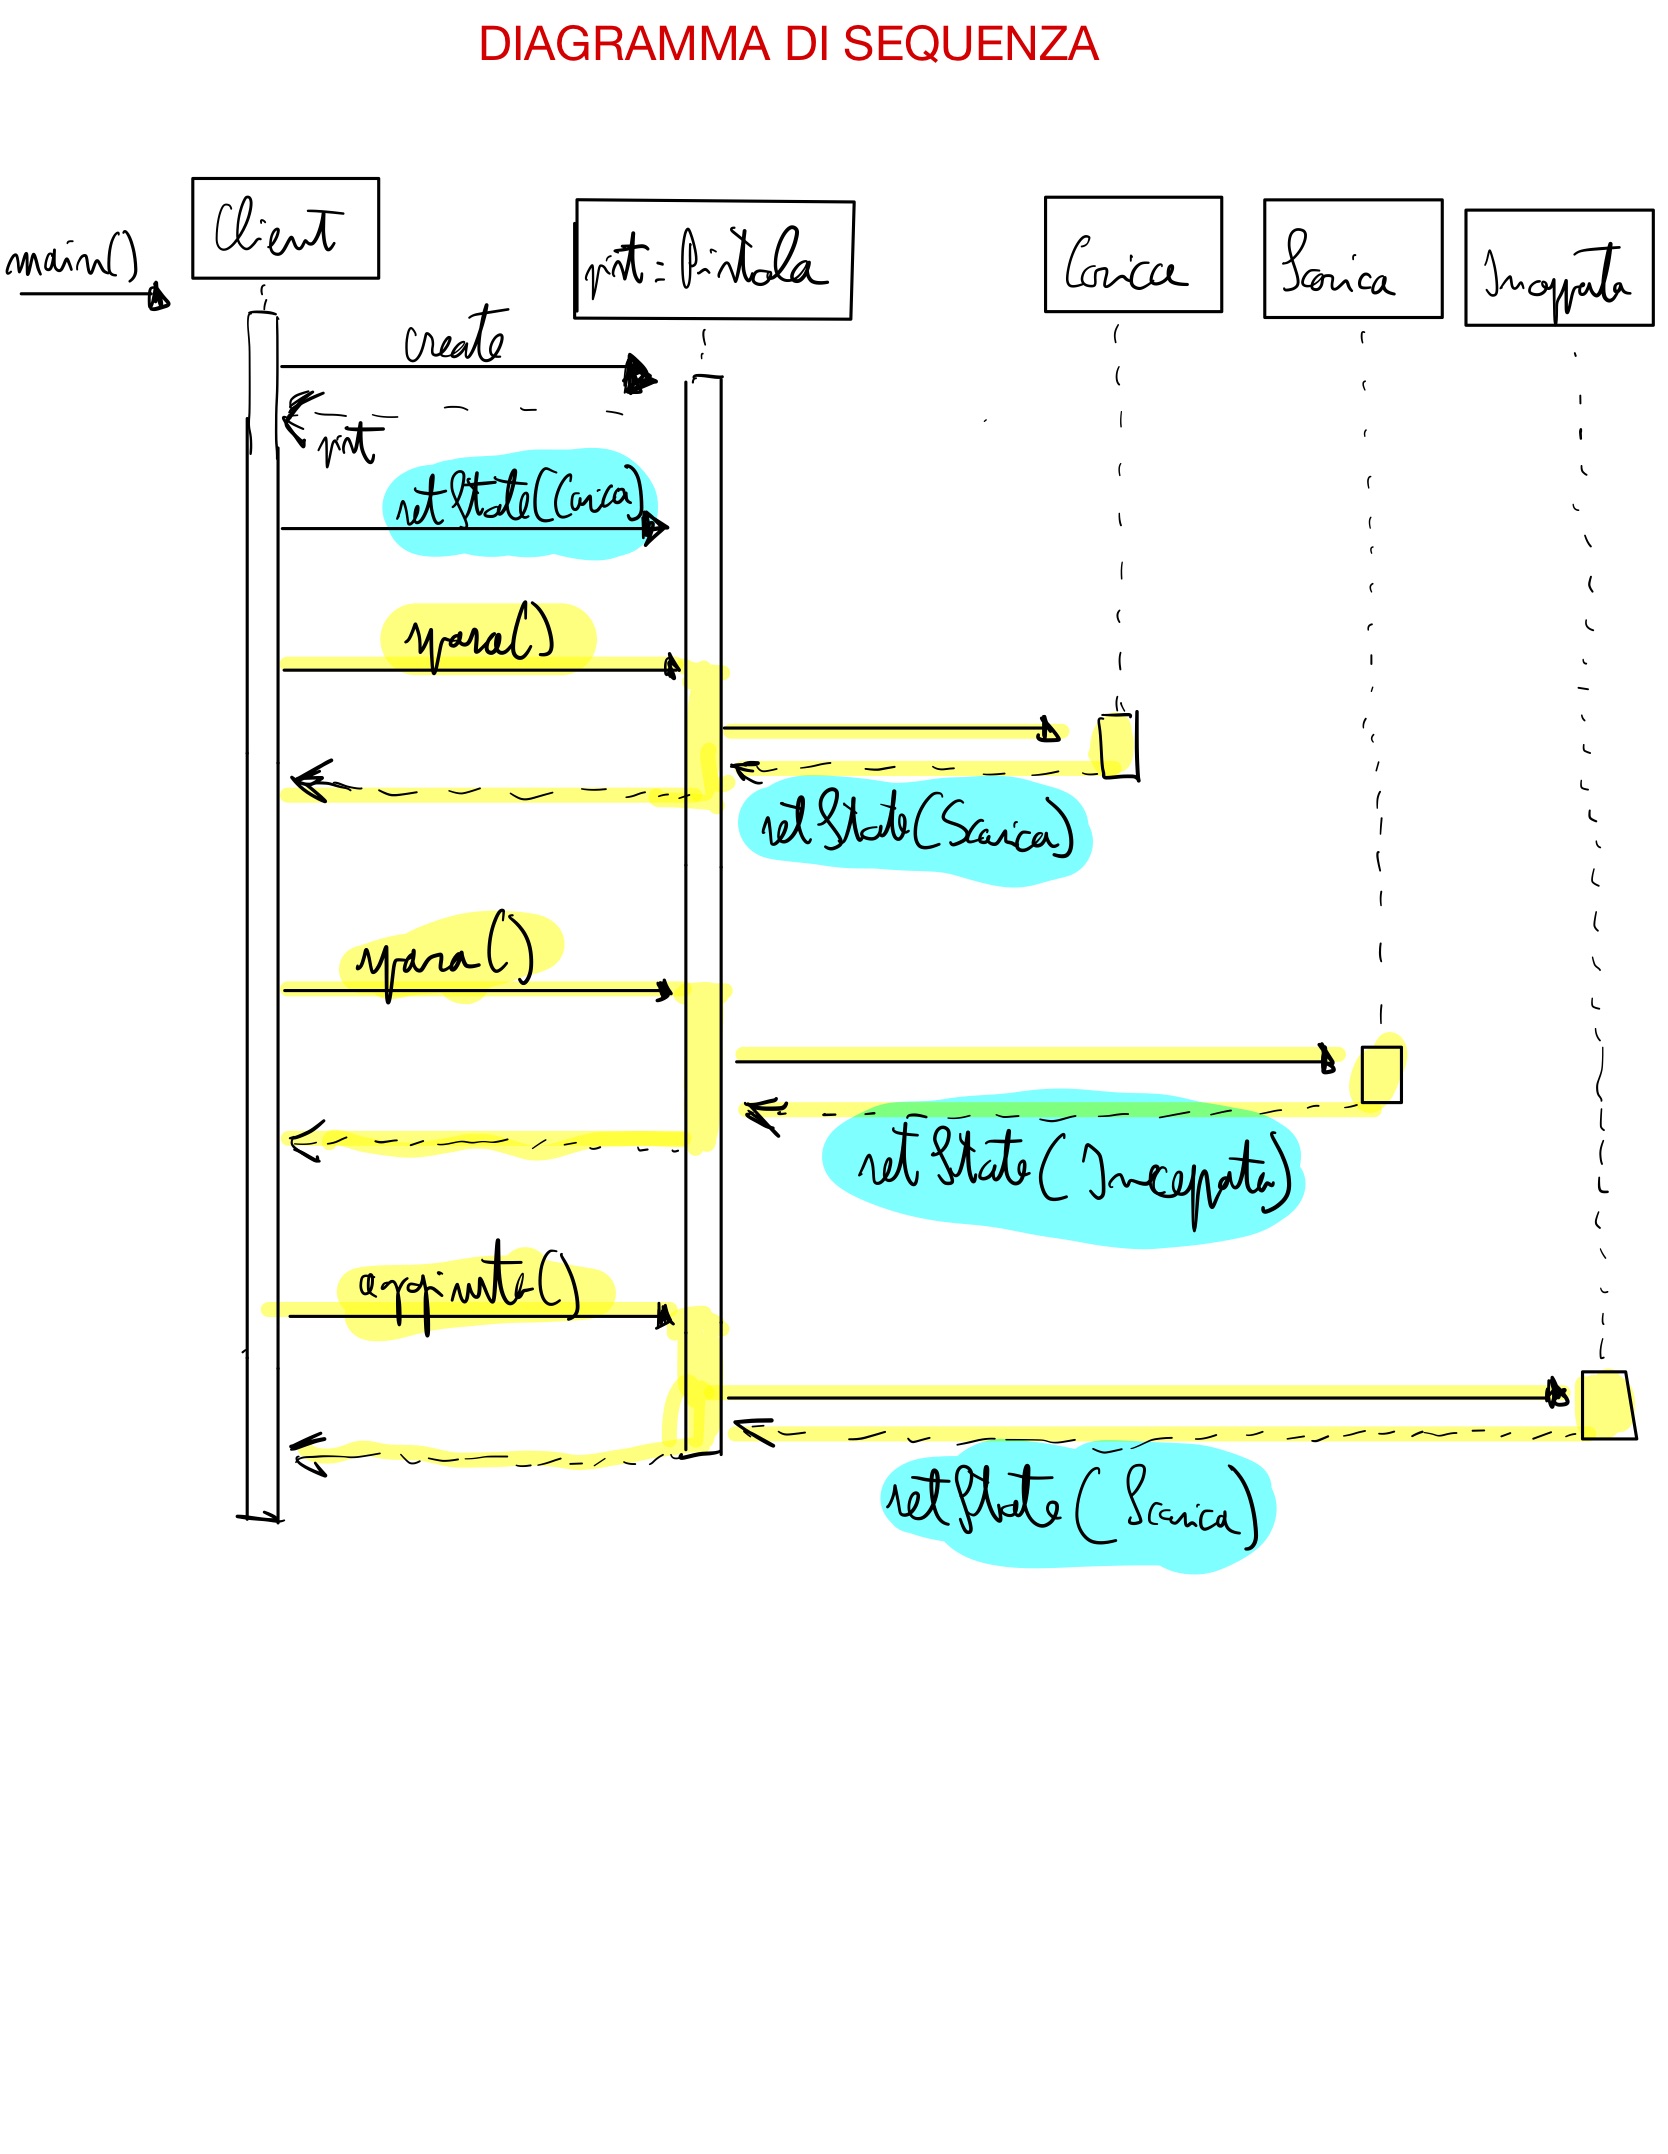 DIAGRAMMA DI SEQUENZA
main()
Client
pist : Pistola
Carica
Scarica
Inceppata
create
pist
setState(Carica)
spara()
setState(Scarica)
spara()
setState(Inceppata)
setState(Scarica)